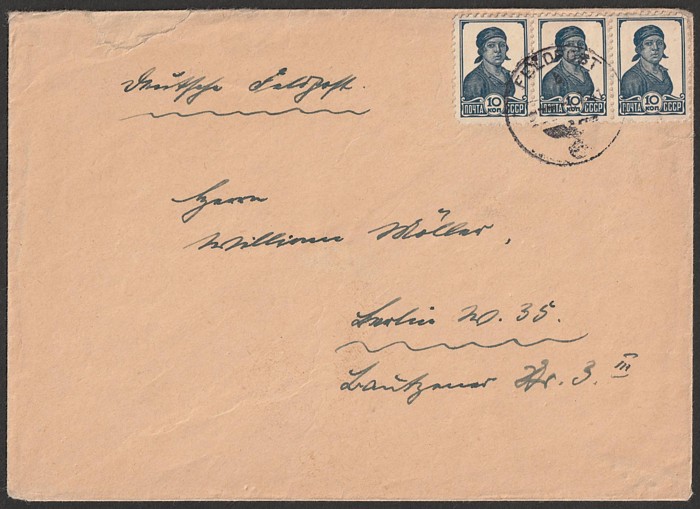 Deutsche Feldpost.
10 КОП
ПОЧТА СССР
10 КОП
ПОЧТА СССР
10 КОП
ПОЧТА СССР
FELDPOST
Herrn
William Möller,
Berlin W. 35.
Bautzener Str. 3. III